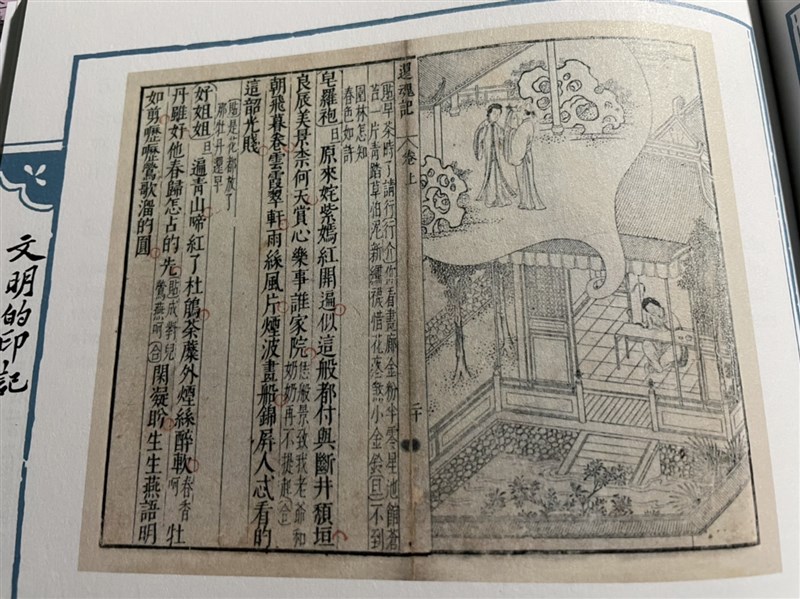 還魂記
卷上
二十
貼早茶時了請行行介你看畫廊金粉半零星池館蒼
苔一片青踏草怕泥新繡襪惜花疼煞小金鈴旦不到
園林怎知
春色如許
皂羅袍旦原來姹紫嫣紅開遍似這般都付與斷井頹垣
良辰美景奈何天賞心樂事誰家院恁般景致我老爺和奶奶再不提起合
朝飛暮卷雲霞翠軒雨絲風片煙波畫船錦屏人忒看的
這韶光賤
貼是花都放了
那牡丹還早
好姐姐旦遍青山啼紅了杜鵑荼蘼外煙絲醉軟春香呵牡
丹雖好他春歸怎占的先貼成對兒鶯燕呵合閑凝盼生生燕語明
如剪嚦嚦鶯歌溜的圓
文明的印記